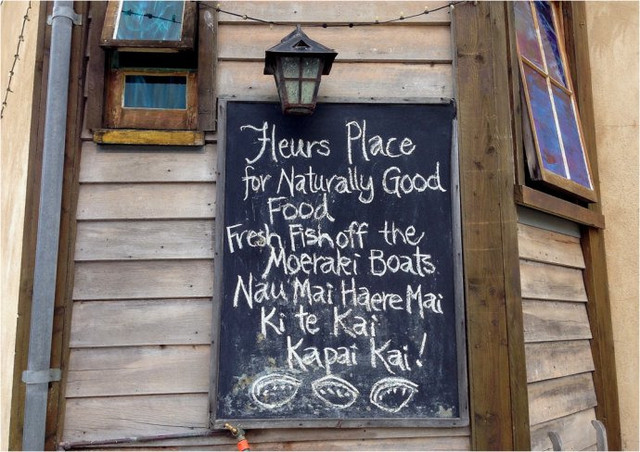 Fleurs Place
for Naturally Good
Food
Fresh Fish off the
Moeraki Boats
Nau Mai Haere Mai
Ki te Kai
Kapai Kai!